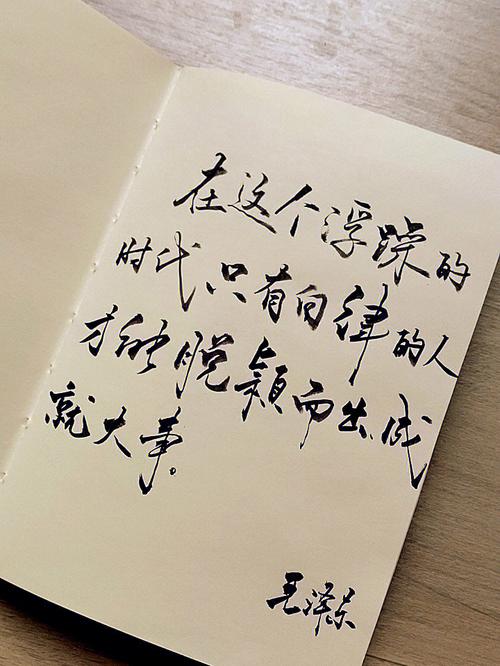 在这个浮躁的
时代只有自律的人
才能脱颖而出成
就大事。
毛泽东